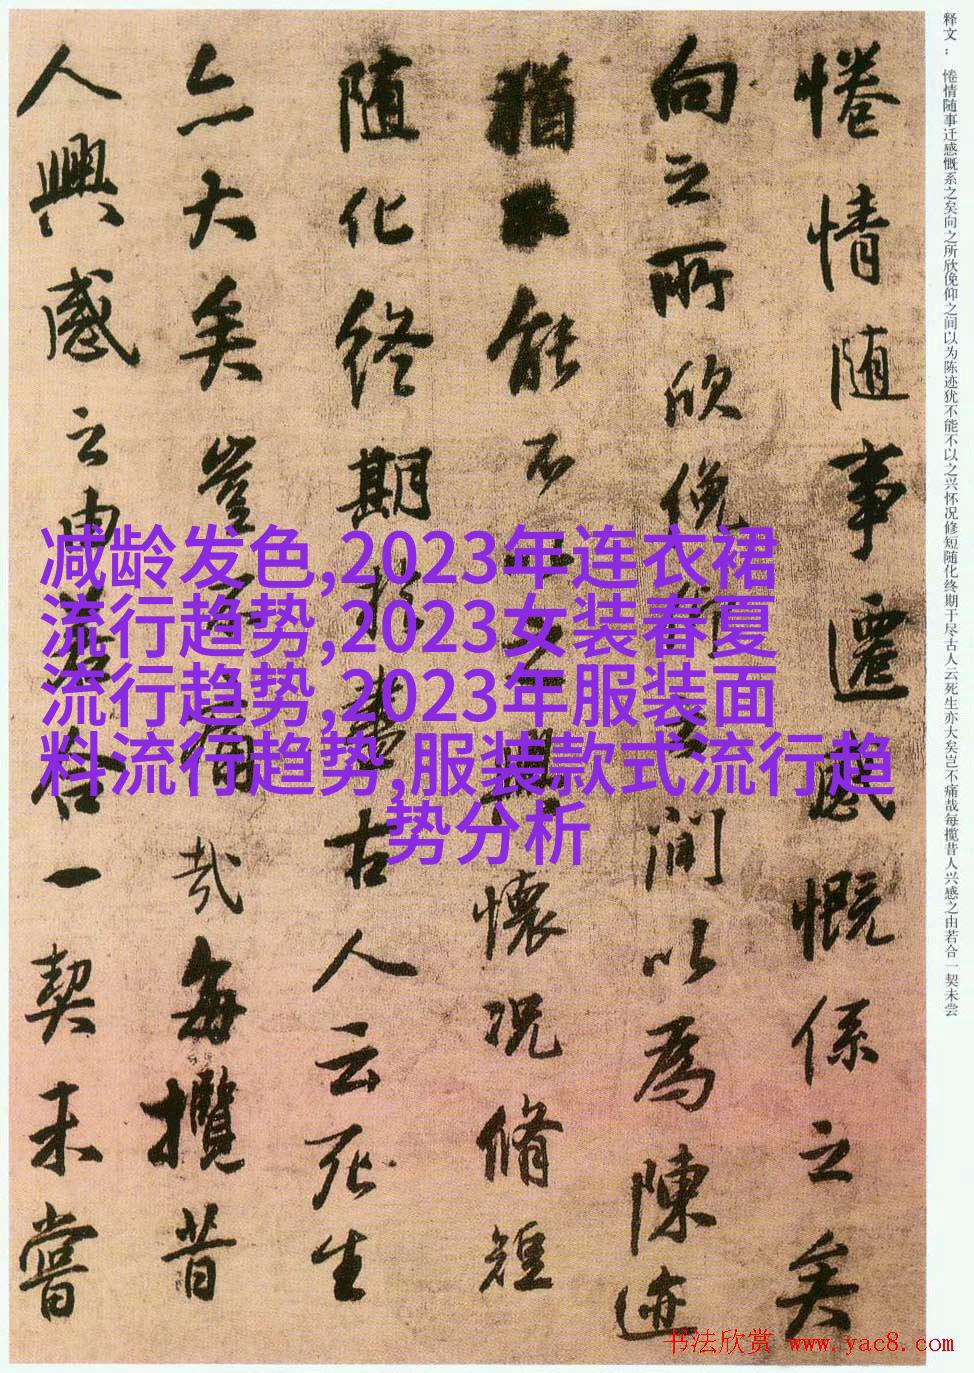 释文：惓情随事迁感慨系之矣向之所欣俛仰之间以为陈迹犹不能不以之兴怀况修短随化终期于尽古人云死生亦大矣岂不痛哉每揽昔人兴感之由若合一契未尝
惓情随事遷感慨係之矣
向之所欣俛仰之間以為陳迹
猶不能不以之興懷況脩短
随化終期於盡古人云死生
亦大矣豈不痛哉每攬昔
人興感之由若合一契未嘗
减龄发色,2023年连衣裙
流行趋势,2023女装春夏
流行趋势,2023年服装面
料流行趋势,服装款式流行趋
势分析
书法欣赏 www.yac8.com